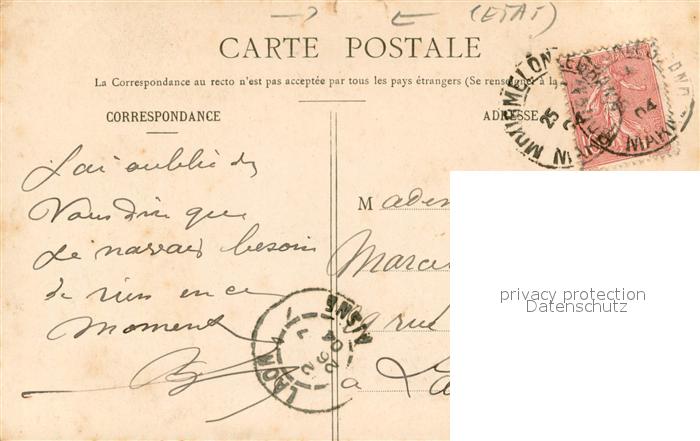 (ETAT)
CARTE POSTALE
La Correspondance au recto n'est pas acceptée par tous les pays étrangers (Se renseigner à la
CORRESPONDANCE
ADRESSE
J'ai oublié de
Vous dire que
Je n'avais besoin
de rien en ce
moment
B
Madem
Marce
rue
à La
MOURMELON
MARNE
25
04
LAON
AISNE
26
04
privacy protection
Datenschutz